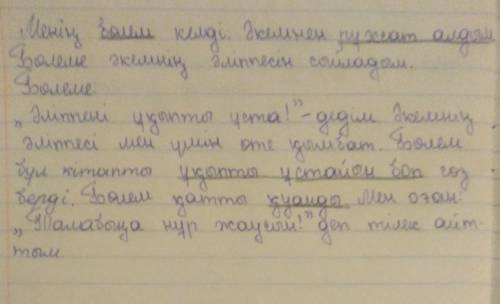 Менің бөлем келді. Әкемнен рұхсат алдым
Бөлеме әкемнің әліппесін сыйладым.
Бөлеме:
„Әліппені ұқыпты ұста!" - дедім Әкемнің
әліппесі мен үшін өте қымбат. Бөлем
бұл кітапты ұқыпты ұстайын боп сөз
берді. Бөлем қатты қуанды Мен оған:
„Талабыңа нұр жаусын!" деп тілек айт-
тым